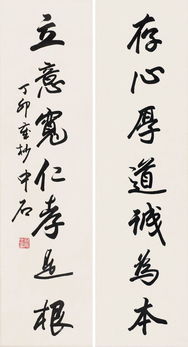 存心厚道诚為本
立意寬仁孝是根
丁卯奎抄中石